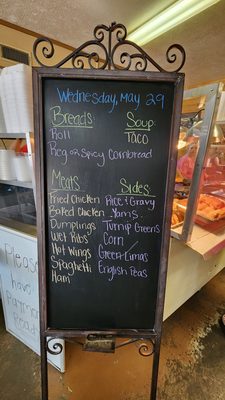 Wednesday, May 29
Breads
Roll
Reg or Spicy Cornbread
Soup:
Taco
Meats
Fried Chicken
Baked Chicken
Dumplings
Wet Ribs
Hot Wings
Spaghetti
Ham
Sides:
Rice & Gravy
Yams
Turnip Greens
Corn
Green Limas
English Peas
Please
Have
Payment
Ready